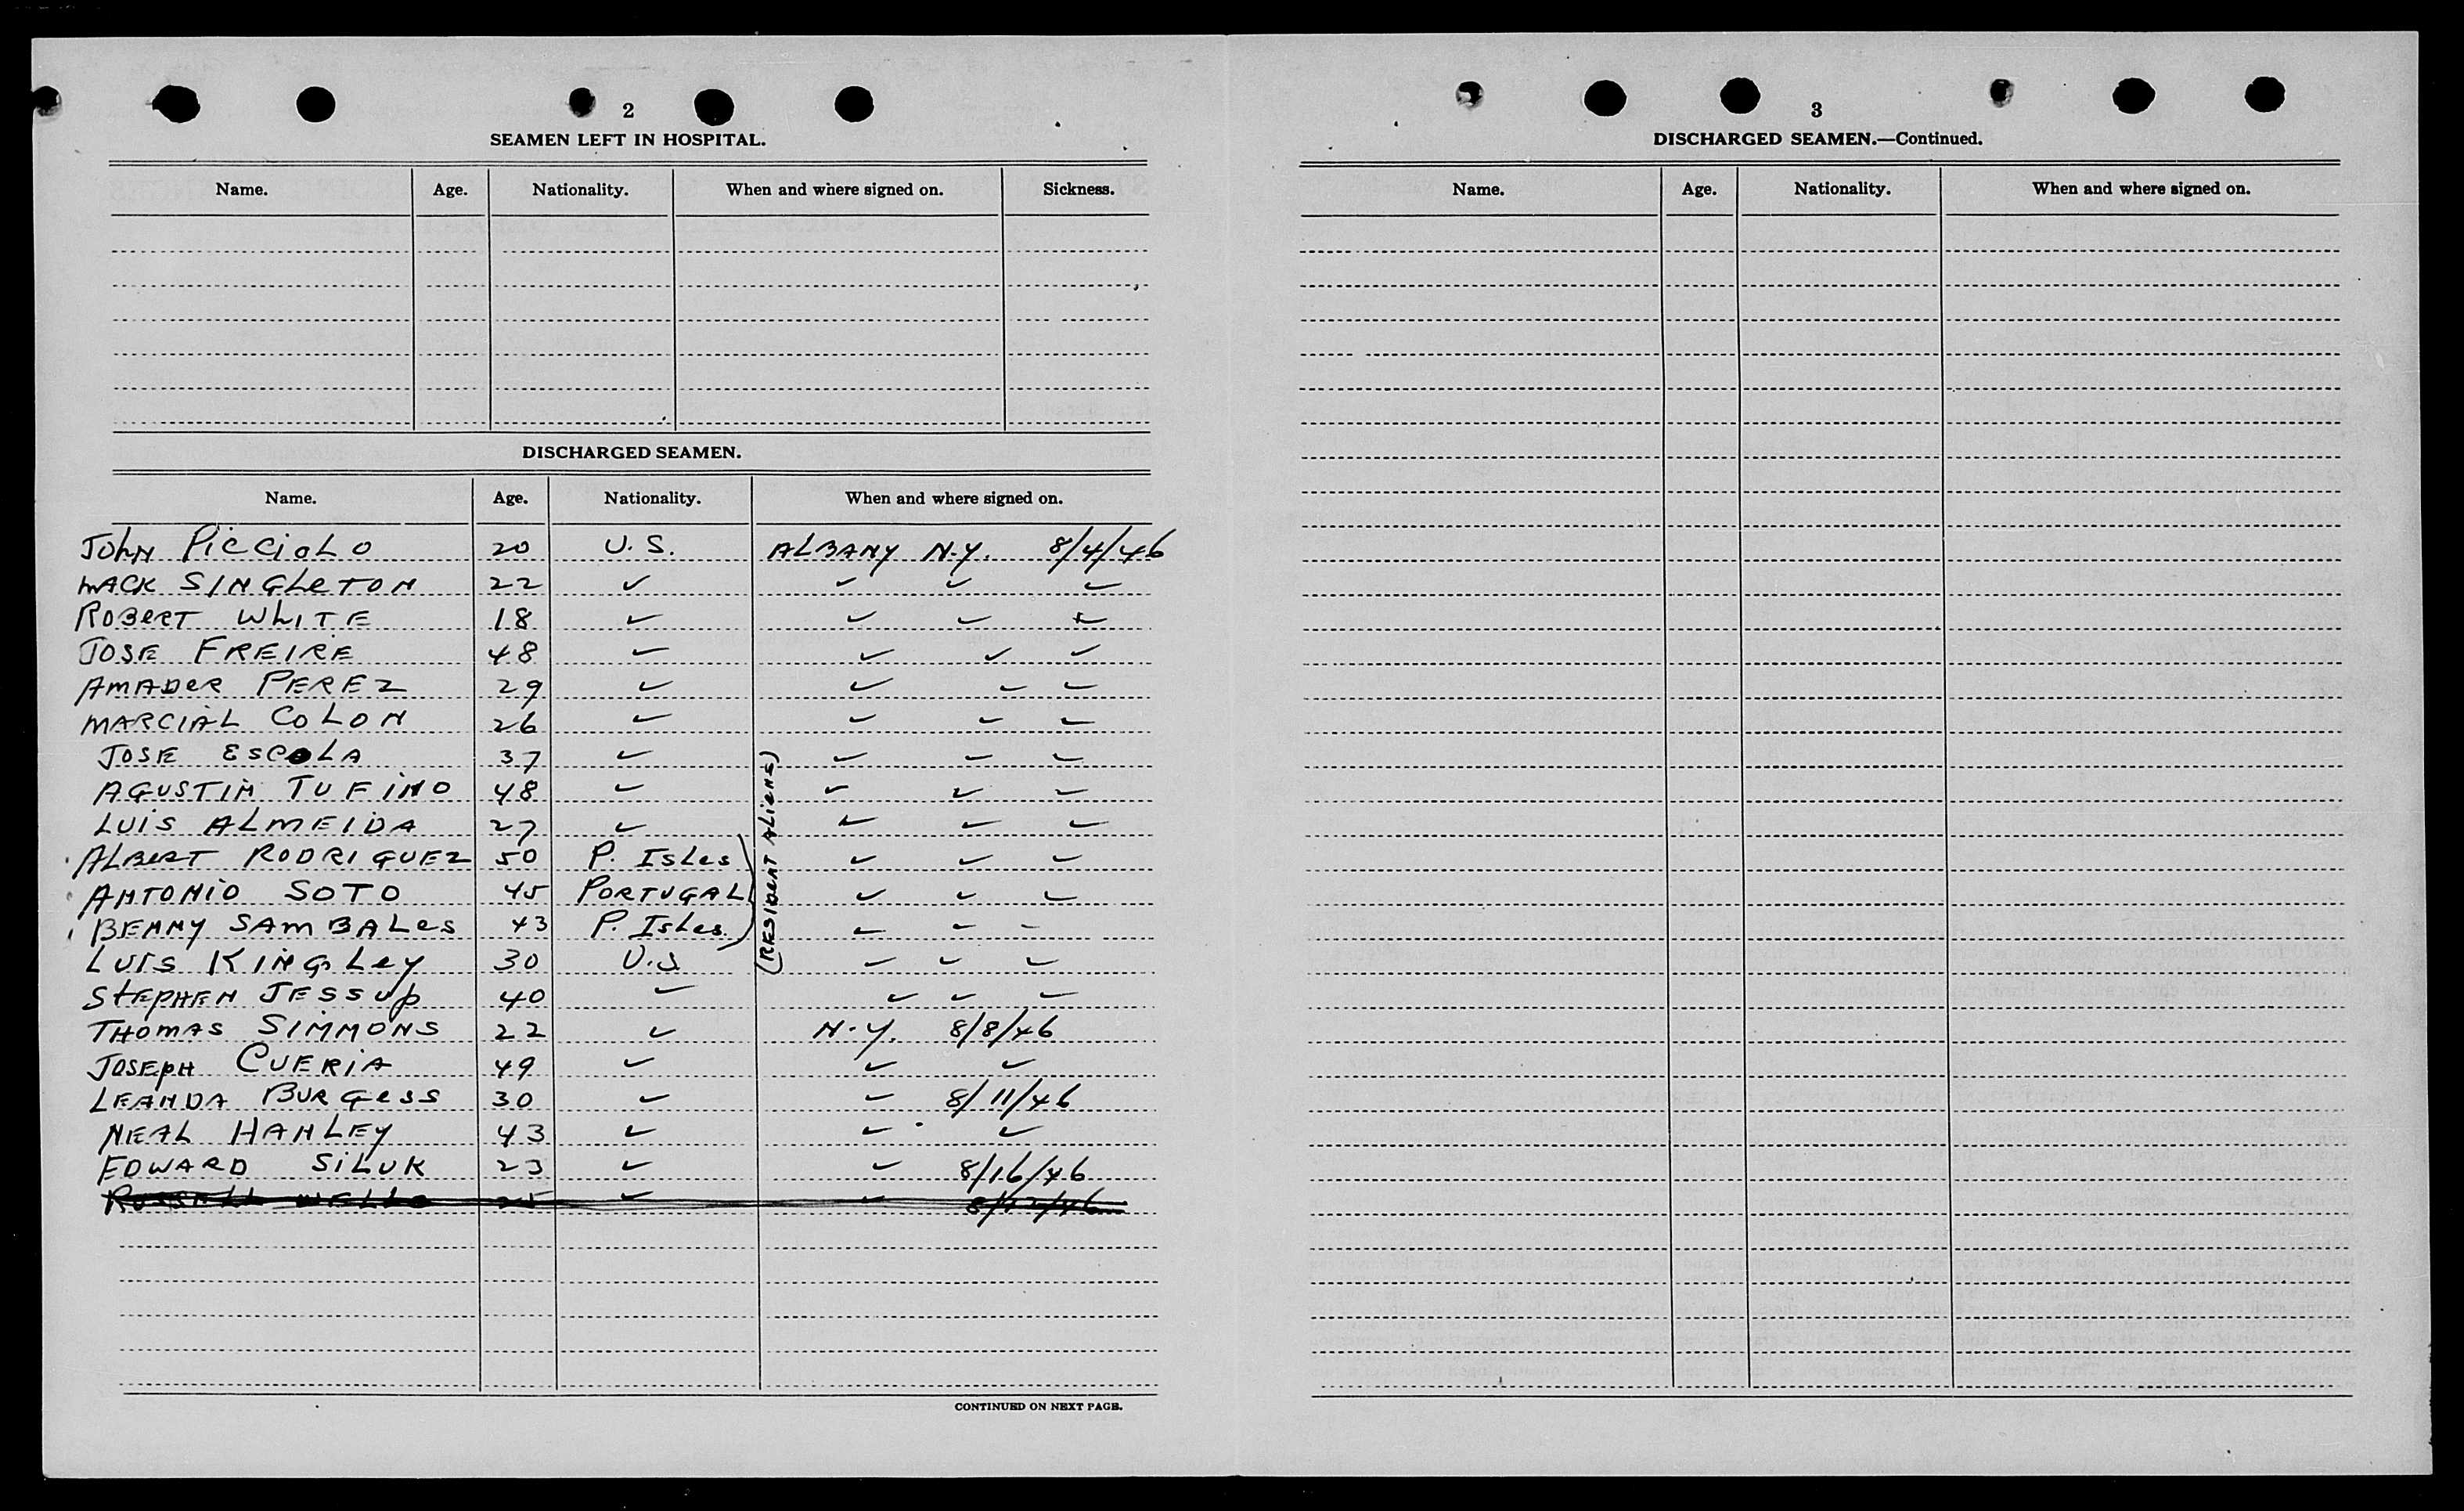 2
SEAMEN LEFT IN HOSPITAL.
Name. Age. Nationality. When and where signed on. Sickness.
DISCHARGED SEAMEN.
Name. Age. Nationality. When and where signed on.
JOHN PICCIOLO 20 U.S. ALBANY N.Y. 8/4/46
MACK SINGLETON 22 ✓ ✓ ✓ ✓
ROBERT WHITE 18 ✓ ✓ ✓ ✓
JOSE FREIRE 48 ✓ ✓ ✓ ✓
AMADER PEREZ 29 ✓ ✓ ✓ ✓
MARCIAL COLON 26 ✓ ✓ ✓ ✓
JOSE ESCOLA 37 ✓ ✓ ✓ ✓
AGUSTIN TUFINO 48 ✓ ✓ ✓ ✓
LUIS ALMEIDA 27 ✓ ✓ ✓ ✓
ALBERT RODRIGUEZ 50 P. ISLES ✓ ✓ ✓
ANTONIO SOTO 45 PORTUGAL ✓ ✓ ✓
BENNY SAMBALES 43 P. ISLES ✓ ✓ ✓
(RESIDENT ALIENS)
LUIS KINGSLEY 30 U.S. ✓ ✓ ✓
STEPHEN JESSUP 40 ✓ ✓ ✓ ✓
THOMAS SIMMONS 22 ✓ N.Y. 8/8/46
JOSEPH CUERIA 49 ✓ ✓ ✓
LEANDA BURGESS 30 ✓ ✓ 8/11/46
NEAL HANLEY 43 ✓ ✓ ✓
EDWARD SILUK 23 ✓ ✓ 8/16/46
CONTINUED ON NEXT PAGE.
3
DISCHARGED SEAMEN.—Continued.
Name. Age. Nationality. When and where signed on.